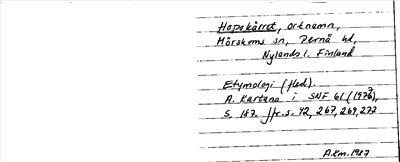 Hopokärret, ortnamn,
Mörskoms sn, Pernå hd,
Nylands l. Finland
Etymologi (fled).
A. Karttena i SNF 61 (1973),
s. 157. Jfr. s. 42, 267, 269, 277
A.Km. 1987